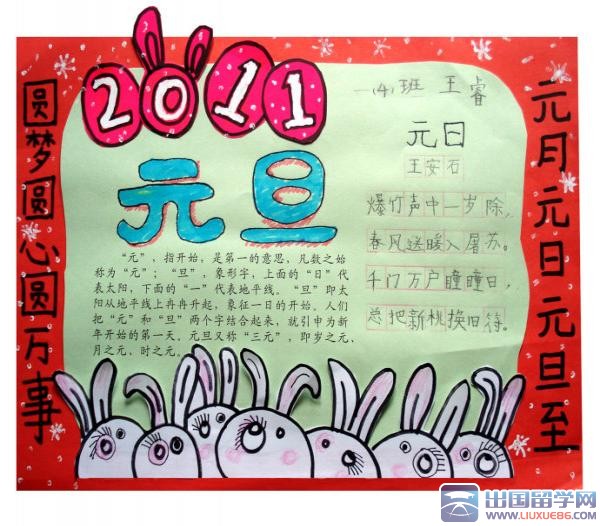 2011
元旦
一(4)班 王睿
元日
王安石
爆竹声中一岁除,
春风送暖入屠苏。
千门万户瞳瞳日,
总把新桃换旧符。
“元”,指开始,是第一的意思,凡数之始
称为“元”;“旦”,象形字,上面的“日”代
表太阳,下面的“一”代表地平线。“旦”即太
阳从地平线上冉冉升起,象征一日的开始。人们
把“元”和“旦”两个字结合起来,就引申为新
年开始的第一天。元旦又称“三元”,即岁之元、
月之元,时之元。
元月元日元旦至
圆梦圆心圆万事
出国留学网
WWW.LIUXUE86.COM